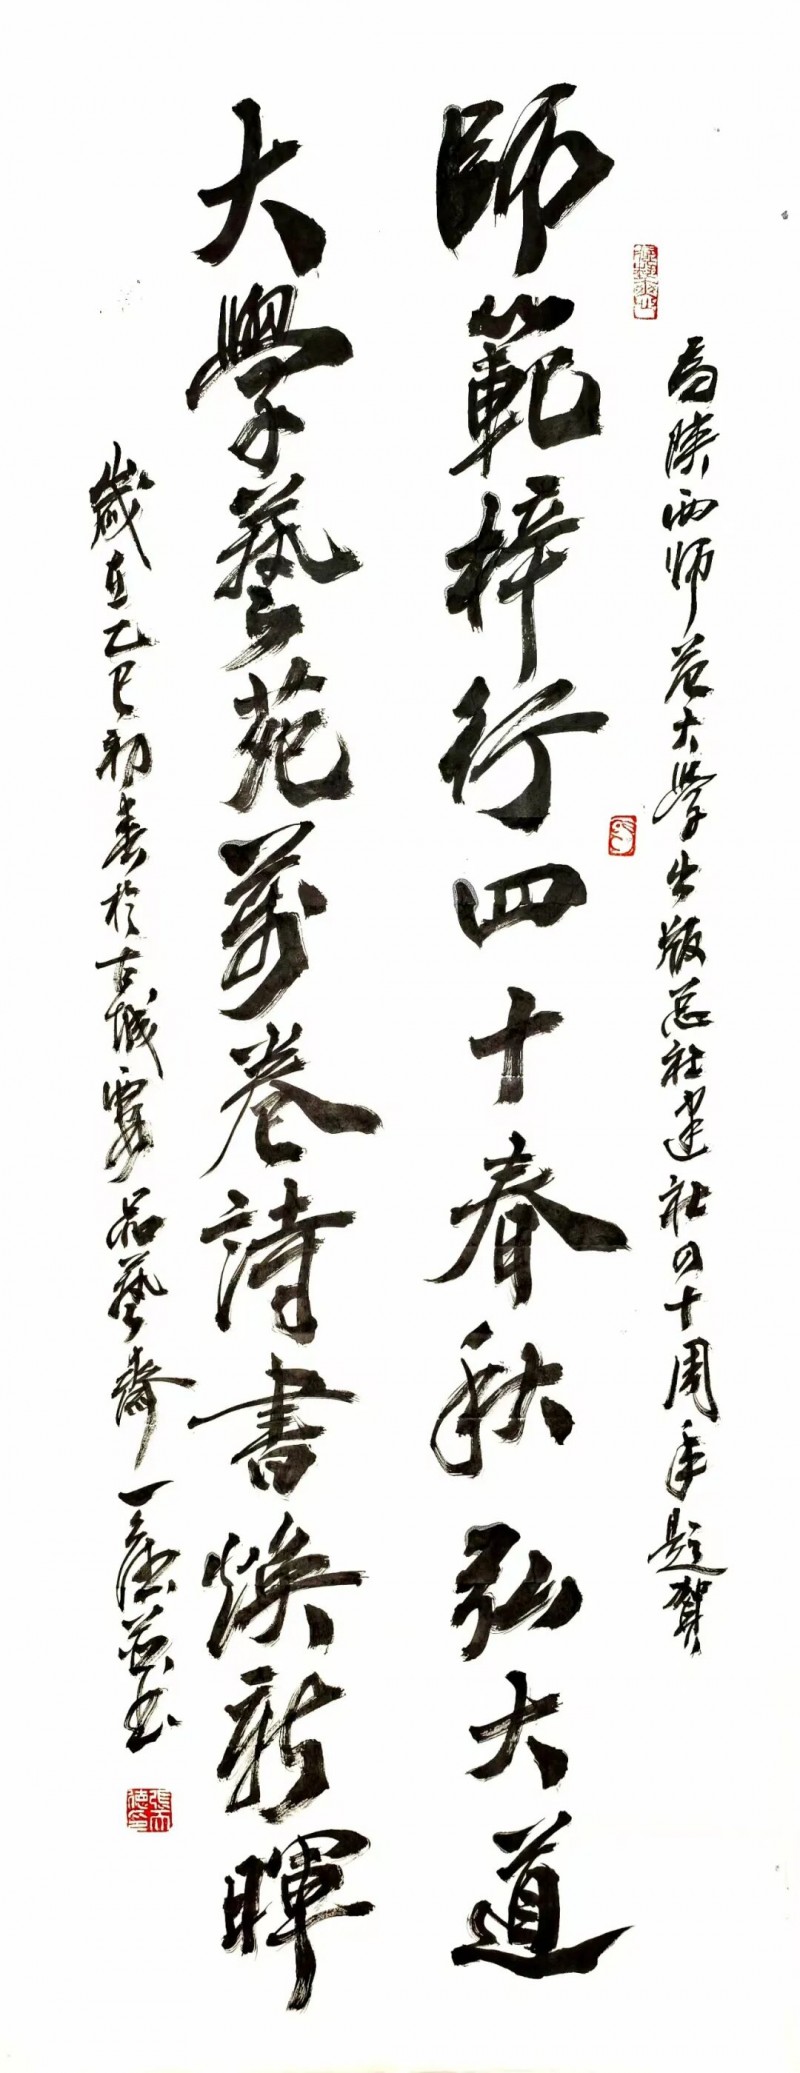 为陕西师范大学出版总社建社四十周年题贺
師範梓行四十春秋弘大道
大學藝苑萬卷詩書焕新暉
歲在乙巳初春於古城 品藝齋一 并书